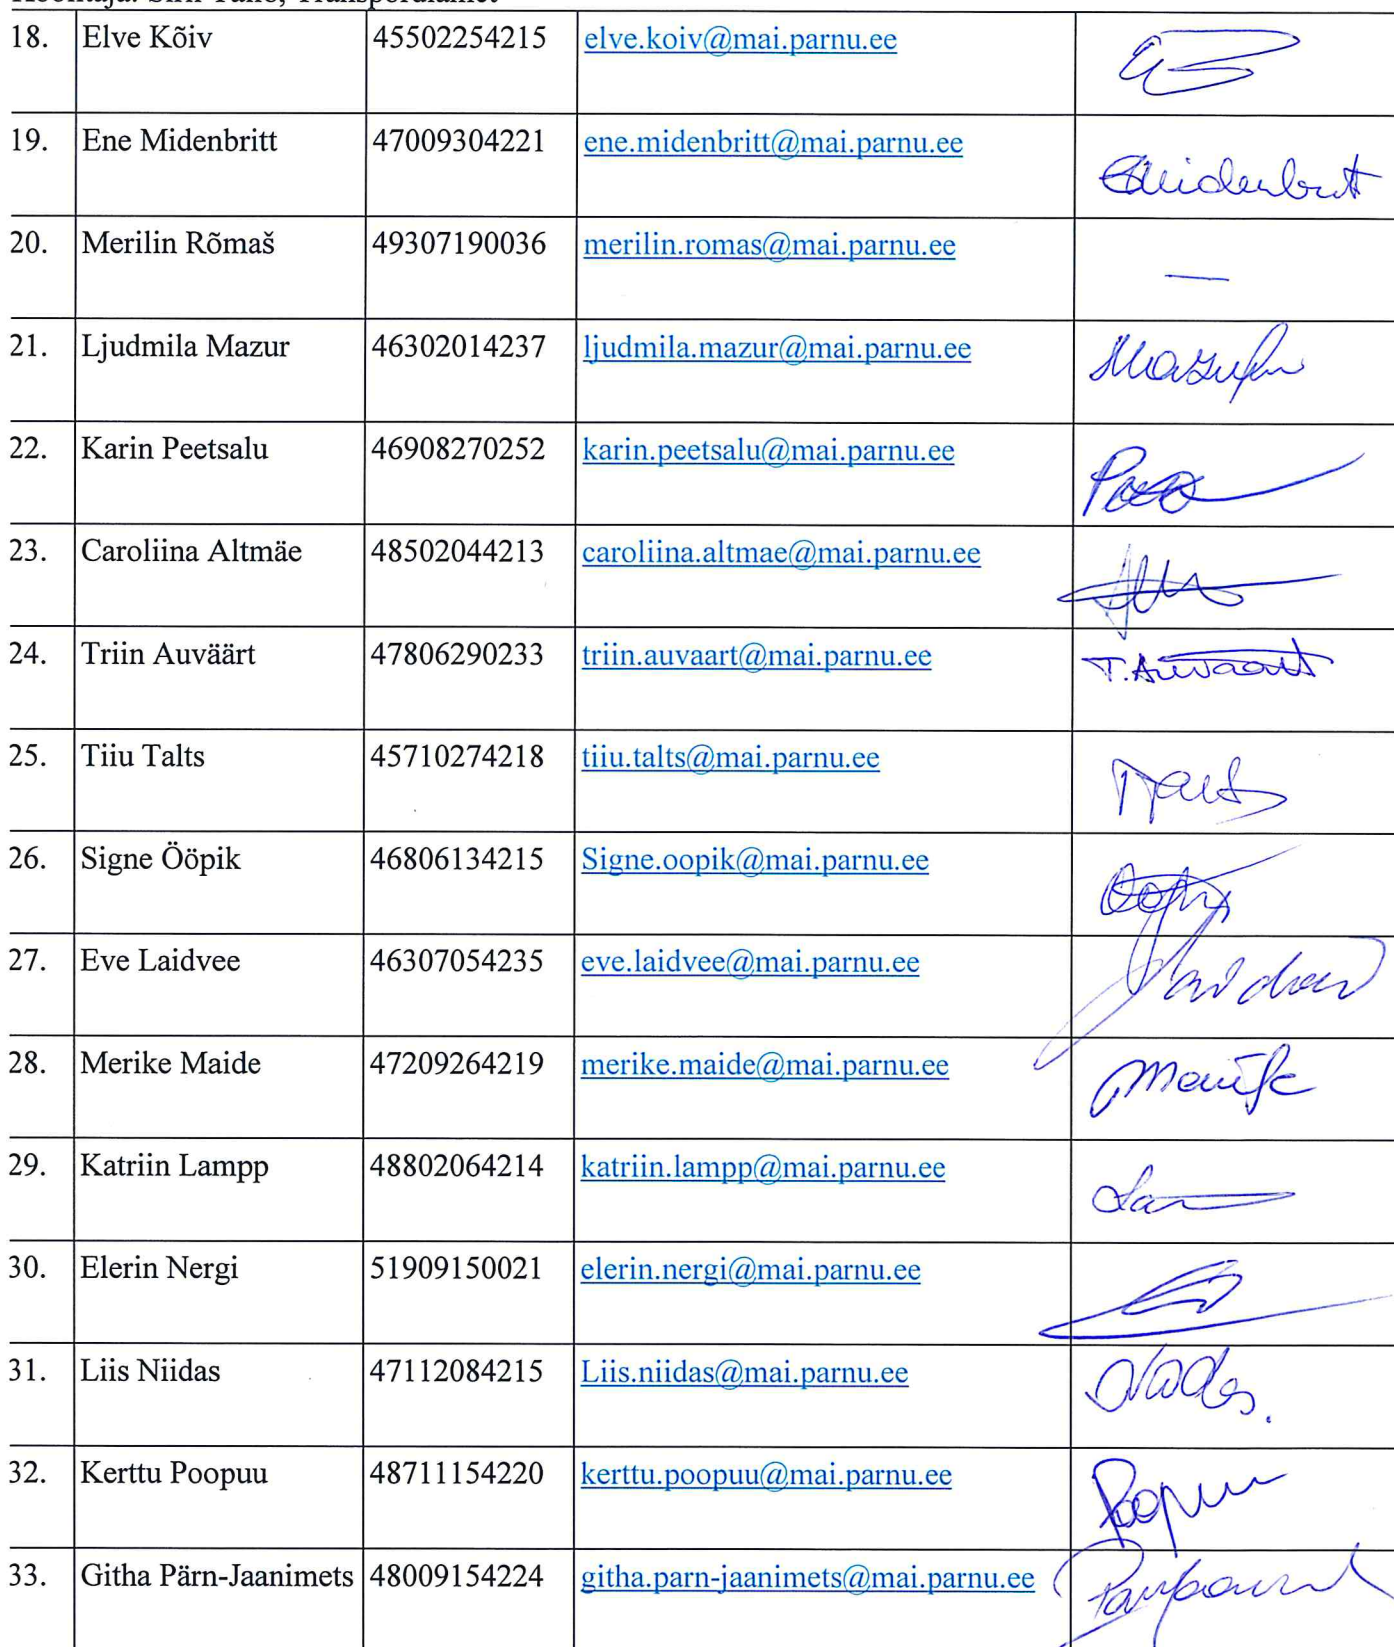 18. Elve Kõiv 45502254215 elve.koiv@mai.parnu.ee
19. Ene Midenbritt 47009304221 ene.midenbritt@mai.parnu.ee
20. Merilin Rõmaš 49307190036 merilin.romas@mai.parnu.ee —
21. Ljudmila Mazur 46302014237 ljudmila.mazur@mai.parnu.ee
22. Karin Peetsalu 46908270252 karin.peetsalu@mai.parnu.ee
23. Caroliina Altmäe 48502044213 caroliina.altmae@mai.parnu.ee
24. Triin Auväärt 47806290233 triin.auvaart@mai.parnu.ee
25. Tiiu Talts 45710274218 tiiu.talts@mai.parnu.ee
26. Signe Ööpik 46806134215 Signe.oopik@mai.parnu.ee
27. Eve Laidvee 46307054235 eve.laidvee@mai.parnu.ee
28. Merike Maide 47209264219 merike.maide@mai.parnu.ee
29. Katriin Lampp 48802064214 katriin.lampp@mai.parnu.ee
30. Elerin Nergi 51909150021 elerin.nergi@mai.parnu.ee
31. Liis Niidas 47112084215 Liis.niidas@mai.parnu.ee
32. Kerttu Poopuu 48711154220 kerttu.poopuu@mai.parnu.ee
33. Githa Pärn-Jaanimets 48009154224 githa.parn-jaanimets@mai.parnu.ee